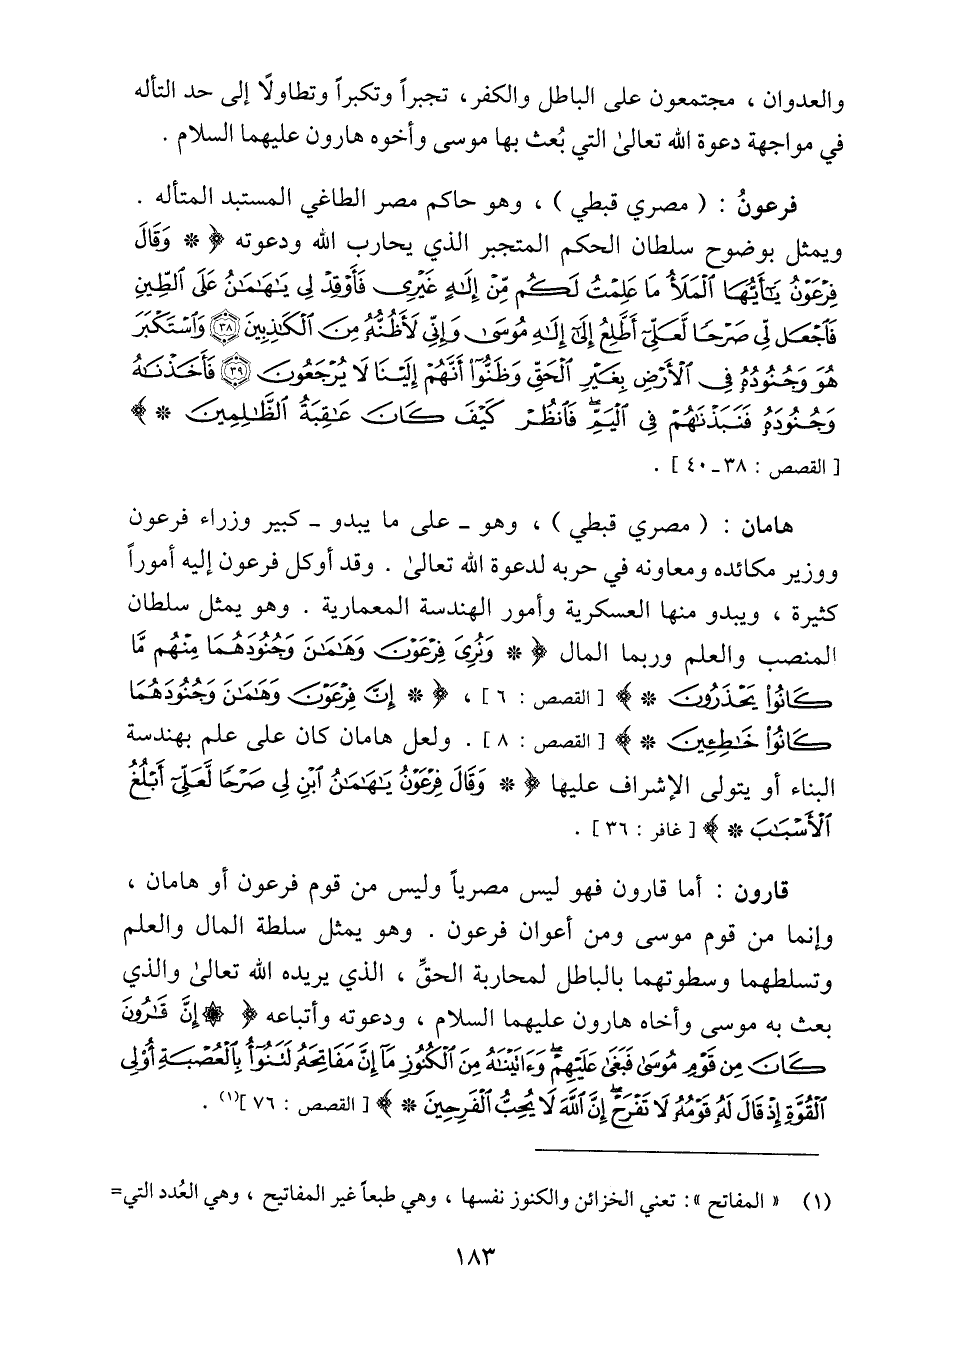 والعدوان ، مجتمعون على الباطل والكفر، تجبراً وتكبراً وتطاولًا إلى حد التأله
في مواجهة دعوة الله تعالىٰ التي بُعث بها موسى وأخوه هارون عليهما السلام .
فرعونُ : ( مصري قبطي ) ، وهو حاكم مصر الطاغي المستبد المتأله .
ويمثل بوضوح سلطان الحكم المتجبر الذي يحارب الله ودعوته ﴿ * وَقَالَ
فِرْعَوْنُ يَٰٓأَيُّهَا ٱلْمَلَأُ مَا عَلِمْتُ لَكُم مِّنْ إِلَٰهٍ غَيْرِى فَأَوْقِدْ لِى يَٰهَٰمَٰنُ عَلَى ٱلطِّينِ
فَٱجْعَل لِّى صَرْحًا لَّعَلِّىٓ أَطَّلِعُ إِلَىٰٓ إِلَٰهِ مُوسَىٰ وَإِنِّى لَأَظُنُّهُۥ مِنَ ٱلْكَٰذِبِينَ ٣٨ وَٱسْتَكْبَرَ
هُوَ وَجُنُودُهُۥ فِى ٱلْأَرْضِ بِغَيْرِ ٱلْحَقِّ وَظَنُّوٓا۟ أَنَّهُمْ إِلَيْنَا لَا يُرْجَعُونَ ٣٩ فَأَخَذْنَٰهُ
وَجُنُودَهُۥ فَنَبَذْنَٰهُمْ فِى ٱلْيَمِّ ۖ فَٱنظُرْ كَيْفَ كَانَ عَٰقِبَةُ ٱلظَّٰلِمِينَ * ﴾
[ القصص : ٣٨ـ٤٠ ] .
هامان : ( مصري قبطي ) ، وهو ـ على ما يبدو ـ كبير وزراء فرعون
ووزير مكائده ومعاونه في حربه لدعوة الله تعالىٰ . وقد أوكل فرعون إليه أموراً
كثيرة ، ويبدو منها العسكرية وأمور الهندسة المعمارية . وهو يمثل سلطان
المنصب والعلم وربما المال ﴿ * وَنُرِىَ فِرْعَوْنَ وَهَٰمَٰنَ وَجُنُودَهُمَا مِنْهُم مَّا
كَانُوا۟ يَحْذَرُونَ * ﴾ [ القصص : ٦ ] ، ﴿ * إِنَّ فِرْعَوْنَ وَهَٰمَٰنَ وَجُنُودَهُمَا
كَانُوا۟ خَٰطِـِٔينَ * ﴾ [ القصص : ٨ ] . ولعل هامان كان على علم بهندسة
البناء أو يتولى الإشراف عليها ﴿ * وَقَالَ فِرْعَوْنُ يَٰهَٰمَٰنُ ٱبْنِ لِى صَرْحًا لَّعَلِّىٓ أَبْلُغُ
ٱلْأَسْبَٰبَ * ﴾ [ غافر : ٣٦ ] .
قارون : أما قارون فهو ليس مصرياً وليس من قوم فرعون أو هامان ،
وإنما من قوم موسى ومن أعوان فرعون . وهو يمثل سلطة المال والعلم
وتسلطهما وسطوتهما بالباطل لمحاربة الحقِّ ، الذي يريده الله تعالىٰ والذي
بعث به موسى وأخاه هارون عليهما السلام ، ودعوته وأتباعه ﴿ ۞ إِنَّ قَٰرُونَ
كَانَ مِن قَوْمِ مُوسَىٰ فَبَغَىٰ عَلَيْهِمْ ۖ وَءَاتَيْنَٰهُ مِنَ ٱلْكُنُوزِ مَآ إِنَّ مَفَاتِحَهُۥ لَتَنُوٓأُ بِٱلْعُصْبَةِ أُو۟لِى
ٱلْقُوَّةِ إِذْ قَالَ لَهُۥ قَوْمُهُۥ لَا تَفْرَحْ ۖ إِنَّ ٱللَّهَ لَا يُحِبُّ ٱلْفَرِحِينَ * ﴾ [ القصص : ٧٦ ](١) .
(١) « المفاتح »: تعني الخزائن والكنوز نفسها ، وهي طبعاً غير المفاتيح ، وهي العُدد التي=
١٨٣